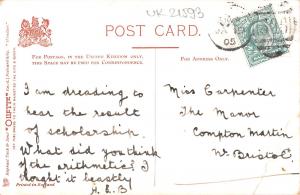 UK 21593
POST CARD.
FOR POSTAGE, IN THE UNITED KINGDOM ONLY, THIS SPACE MAY BE USED FOR CORRESPONDENCE.
FOR ADDRESS ONLY.
05
I am dreading to
hear the result
of scholarship.
What did you think
of the arithmetic? I
thought it beastly
H.L.B
Miss Carpenter
The Manor
Compton Martin
Nr. Bristol
"OILETTE"
Printed in England